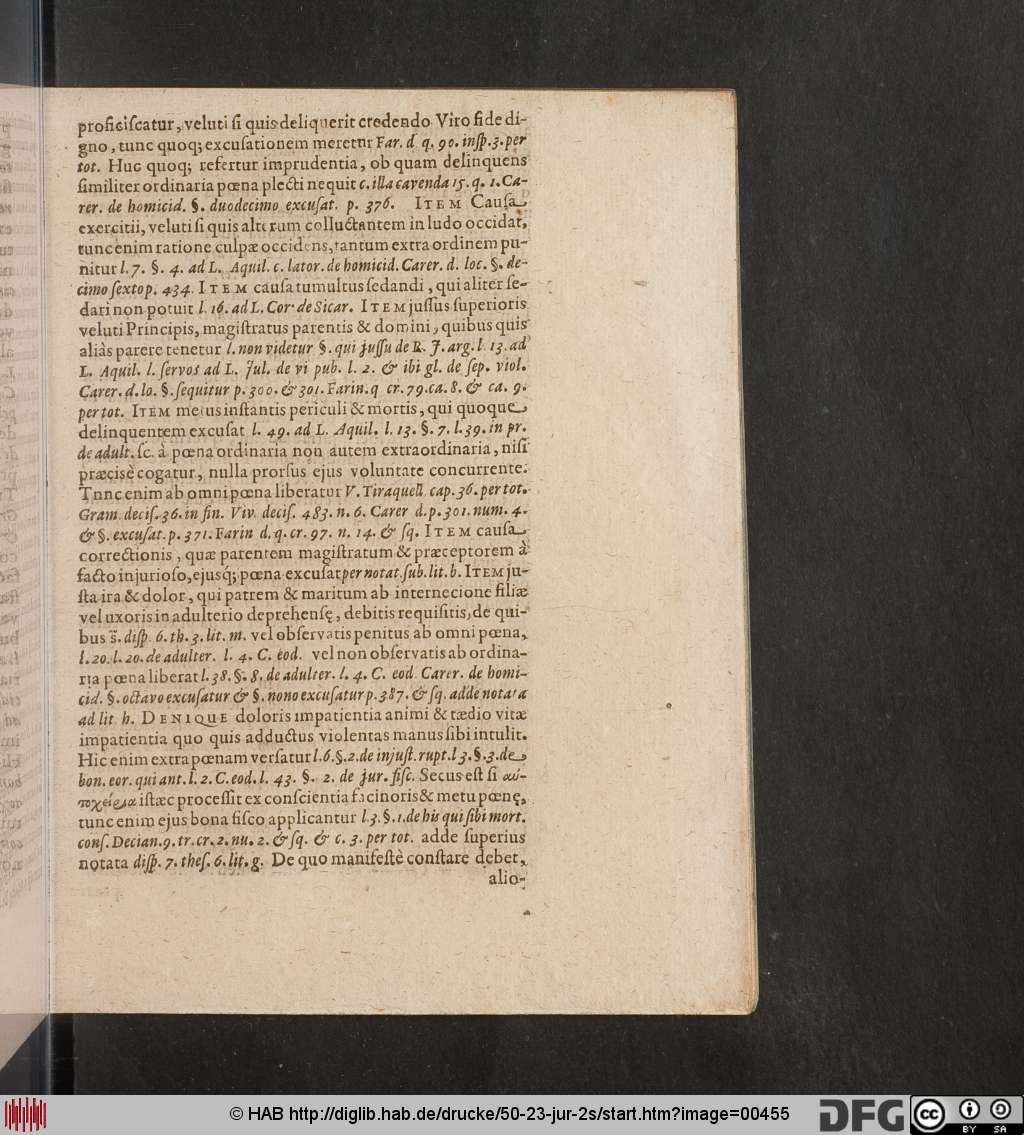 proficiſcatur, veluti ſi quis deliquerit credendo Viro fide di-
gno, tunc quoq; excuſationem meretur Far. d q. 90. inſp. 3. per
tot. Huc quoq; refertur imprudentia, ob quam delinquens
ſimiliter ordinaria pœna plecti nequit c. illa cavenda 15. q. 1. Ca-
rer. de homicid. §. duodecimo excuſat. p. 376. ITEM Cauſa
exercitii, veluti ſi quis alterum colluctantem in ludo occidat,
tunc enim ratione culpæ occidens, tantum extra ordinem pu-
nitur l. 7. §. 4. ad L. Aquil. c. lator. de homicid. Carer. d. loc. §. de-
cimo ſexto p. 434. ITEM cauſa tumultus ſedandi, qui aliter ſe-
dari non potuit l. 16. ad L. Cor. de Sicar. ITEM juſſus ſuperioris
veluti Principis, magiſtratus parentis & domini, quibus quis
aliàs parere tenetur l. non videtur §. qui juſſu de R. J. arg. l. 13. ad
L. Aquil. l. ſervos ad L. Jul. de vi pub. l. 2. & ibi gl. de ſep. viol.
Carer. d. lo. §. ſequitur p. 300. & 301. Farin. q cr. 79. ca. 8. & ca. 9.
per tot. ITEM metus inſtantis periculi & mortis, qui quoque
delinquentem excuſat l. 49. ad L. Aquil. l. 13. §. 7. l. 39. in pr.
de adult. ſc. à pœna ordinaria non autem extraordinaria, niſi
præcisè cogatur, nulla prorſus ejus voluntate concurrente.
Tnnc enim ab omni pœna liberatur V. Tiraquell. cap. 36. per tot.
Gram. deciſ. 36. in fin. Viv. deciſ. 483. n. 6. Carer d. p. 301. num. 4.
& §. excuſat. p. 371. Farin d. q. cr. 97. n. 14. & ſq. ITEM cauſa
correctionis, quæ parentem magiſtratum & præceptorem à
facto injurioſo, ejusq́; pœna excuſat per notat. ſub. lit. b. ITEM ju-
ſta ira & dolor, qui patrem & maritum ab internecione filiæ
vel uxoris in adulterio deprehenſę, debitis requiſitis, de qui-
bus s̃. diſp. 6. th. 3. lit. m. vel obſervatis penitus ab omni pœna,
l. 20. l. 20. de adulter. l. 4. C. eod. vel non obſervatis ab ordina-
ria pœna liberat l. 38. §. 8. de adulter. l. 4. C. eod. Carer. de homi-
cid. §. octavo excuſatur & §. nono excuſatur p. 387. & ſq. adde notata
ad lit. h. DENIQUE doloris impatientia animi & tædio vitæ
impatientia quo quis adductus violentas manus ſibi intulit.
Hic enim extra pœnam verſatur l. 6. §. 2. de injuſt. rupt. l 3. §. 3. de
bon. eor. qui ant. l. 2. C. eod. l. 43. §. 2. de jur. fiſc. Secus eſt ſi αὐ-
τοχείρια iſtæc proceſſit ex conſcientia facinoris & metu pœnę,
tunc enim ejus bona fiſco applicantur l. 3. §. 1. de his qui ſibi mort.
conſ. Decian. 9. tr. cr. 2. nu. 2. & ſq. & c. 3. per tot. adde ſuperius
notata diſp. 7. theſ. 6. lit. g. De quo manifeſtè conſtare debet,
alio-
© HAB http://diglib.hab.de/drucke/50-23-jur-2s/start.htm?image=00455
DFG
cc
BY SA